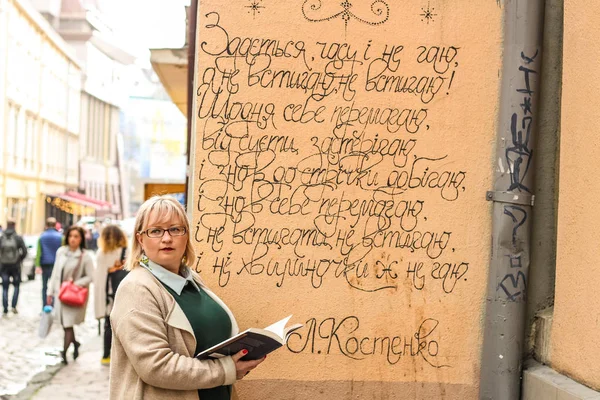 Здається, часу і не гаю,
а не встигаю, не встигаю!
Щодня себе перемагаю,
від суєти застерігаю
і знов до стрічки добігаю,
і знов себе перемагаю,
і не встигати не встигаю,
і ні хвилиночки ж не гаю.
Л. Костенко